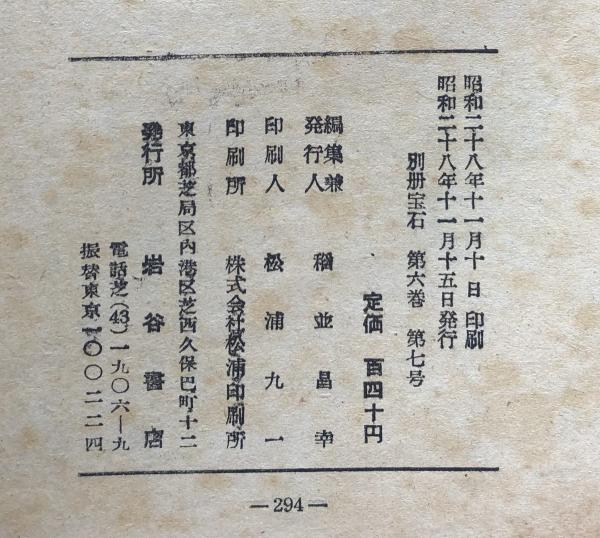 昭和二十八年十一月十日 印刷
昭和二十八年十一月十五日発行
別册宝石 第六巻 第七号
定価 百四十円
編集兼
発行人 稲並昌幸
印刷人 松浦九一
印刷所 株式会社松浦印刷所
東京都芝局区内港区芝西久保巴町十二
発行所 岩谷書店
電話芝(43)一九〇六—九
振替東京一〇〇二二四
—294—